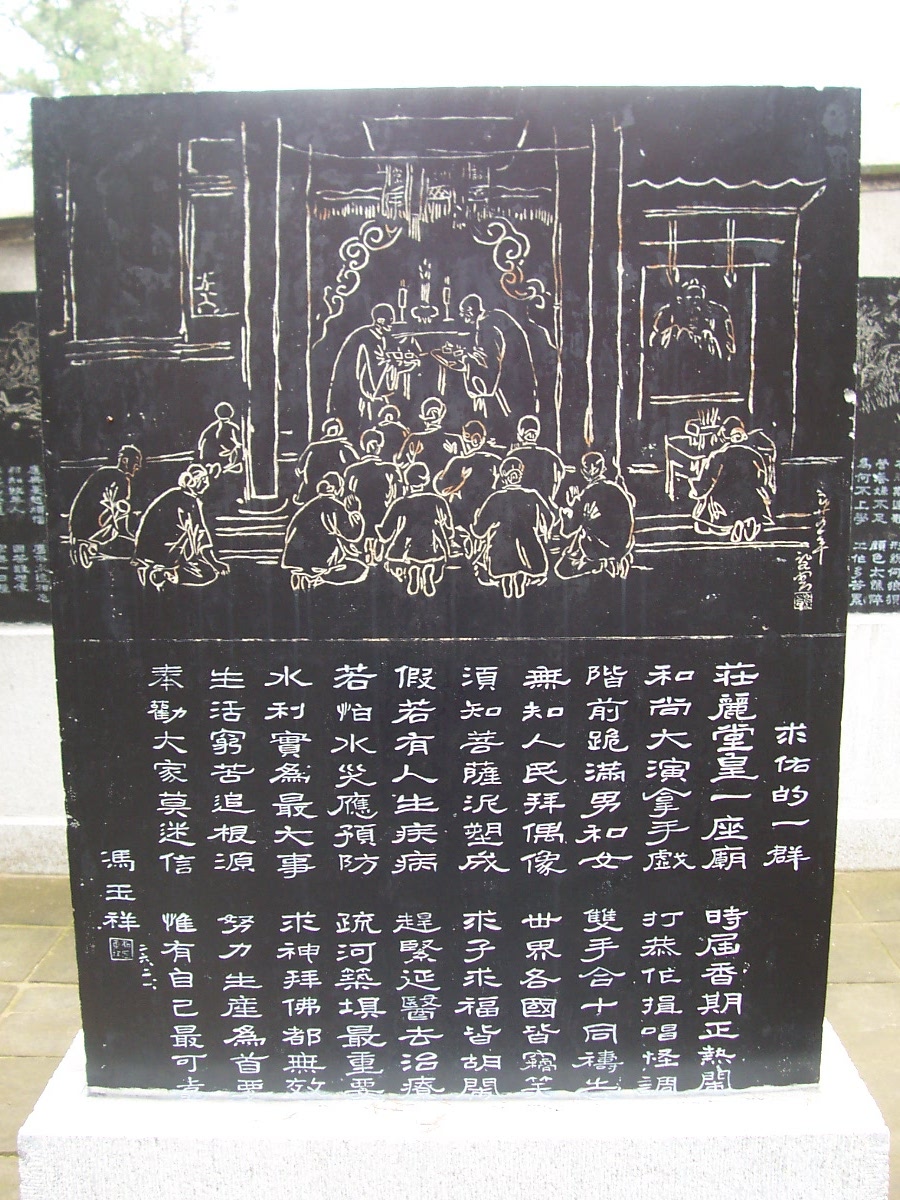 求佑的一群
莊麗堂皇一座廟　時屆香期正熱鬧
和尚大演拿手戲　打恭作揖唱怪調
階前跪滿男和女　雙手合十同禱告
無知人民拜偶像　世界各國皆竊笑
須知菩薩泥塑成　求子求福皆胡鬧
假若有人生疾病　趕緊延醫去治療
若怕水災應預防　疏河築埧最重要
水利實為最大事　求神拜佛都無效
生活窮苦追根源　努力生產為首要
奉勸大家莫迷信　惟有自己最可靠
馮玉祥